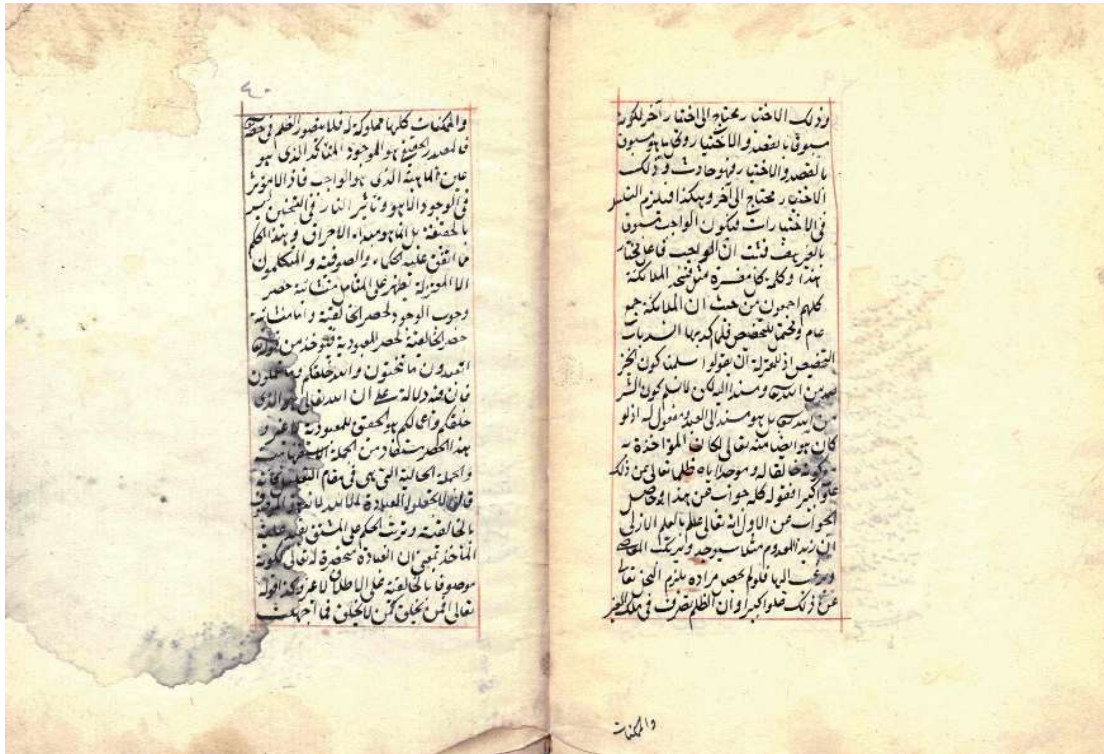 وذلك الاختيار يحتاج الى اختيار آخر لكونه
مسبوقا بالقصد والاختيار وكل ما هو مسبوق
بالقصد والاختيار فهو حادث وذلك
الاختيار محتاج الى آخر وهكذا فيلزم التسلسل
فى الاختيارات فيكون الواجب مسبوقا
بالغير فثبت ان الواجب فاعل مختار
هذا وكلمة كل مفسرة مثل فسجد الملائكة
كلهم اجمعون من حيث ان الملائكة جمع
عام ويحتمل التخصيص فلما اكد بها
التخصيص اذ للمعتزلة ان يقولوا سلمنا كون الخير
من الله ومسندا اليه لكن لا نسلم كون الشر
من الله بل هو مسند الى العبد ومفعول له اذ لو
كان هو ايضا منه تعالى لكان المؤاخذة به
خالقا له وموجدا اياه ظلما تعالى عن ذلك
علوا كبيرا فقوله كله جواب عن هذا وحاصل
الجواب عن الاول انه تعالى علم بالعلم الازلى
ان زيد المعدوم مثلا سيوجد ويرتكب المعاصى
اليها فلو لم يحصل مراده يلزم البخل تعالى
عن ذلك علوا كبيرا وان الظلم تصرف فى ملك الغير
والممكنات
٤٠
والممكنات كلها مملوكة له فلا يتصور الظلم فى حقه
فالمصدر الحقيقى هو الموجود المتأكد الذى هو
عين الماهية الذى هو الواجب فاذا لا مؤثر
فى الوجود الا هو وتأثير النار فى التسخين ليس
بالحقيقة بل انما هو مبداء الاحراق وهذا الحكم
مما اتفق عليه الحكماء والصوفية والمتكلمون
الا المعتزلة يظهر على المتأمل منشائية حصر
وجوب الوجود لحصر الخالقية واما منشائية
حصر الخالقية لحصر المعبودية فتؤخذ من
اتعبدون ما تنحتون والله خلقكم وما تعملون
فان فيه دلالة على ان الله تعالى هو الذى
خلقكم واعمالكم هو الحقيق للمعبودية لا غير و
هذا الحصر مستفاد من الجملة الاستفهامية
والجملة الحالية التى هى فى مقام التعليل فكأنه
قال لا تجعلوا العبادة الا لله
بالخالقية وترتب الحكم على المشتق يفيد علية
المأخذ بمعنى ان العبادة منحصرة له تعالى لكونه
موصوفا بالخالقية على الاطلاق لا غير وكذا قوله
تعالى افمن يخلق كمن لا يخلق فما اجهلك